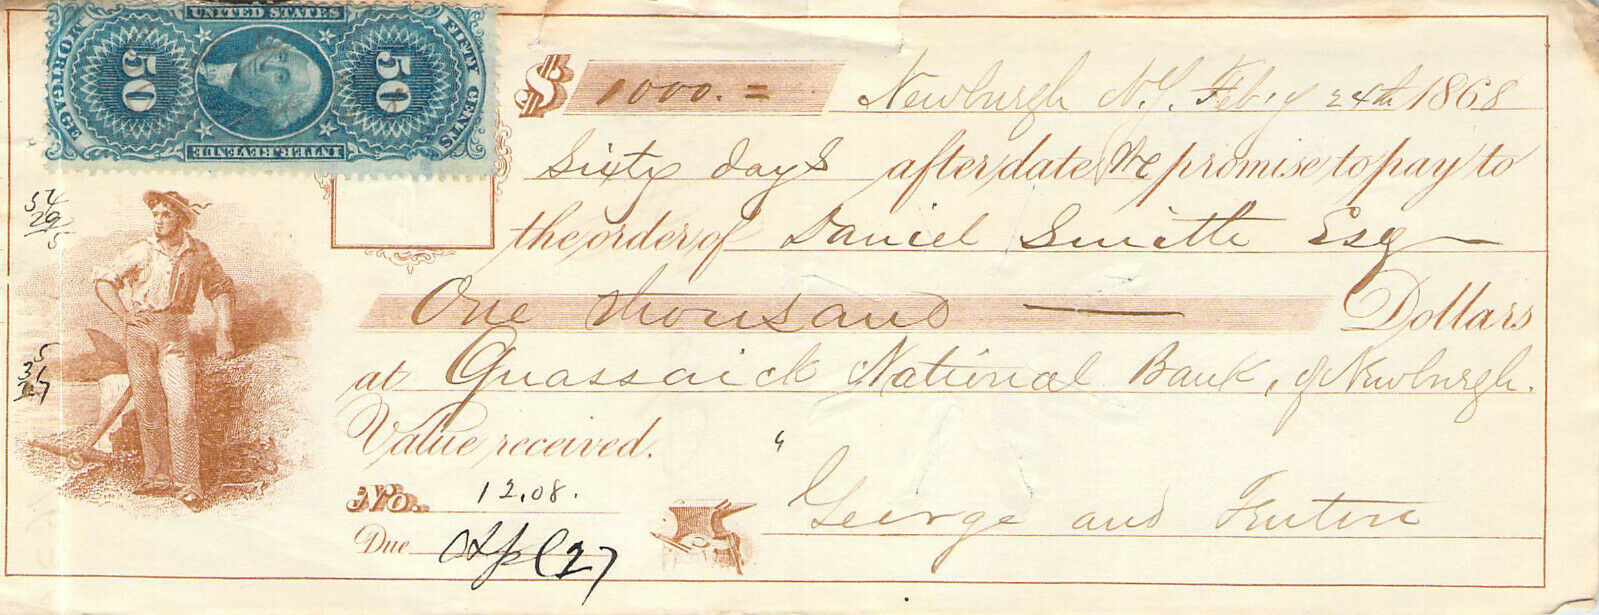 UNITED STATES
ORIG
FIFTY CENTS
50
50
AGE
INTER. REVENUE
$ 1000. = Newburgh N.Y. Feb'y 24th 1868
Sixty days after date We promise to pay to
the order of Daniel Smith Esq
One thousand — Dollars
at Quassaick National Bank, of Newburgh.
Value received.
No. 12.08.
George and Fenton
Due Apl 27
54
29
5